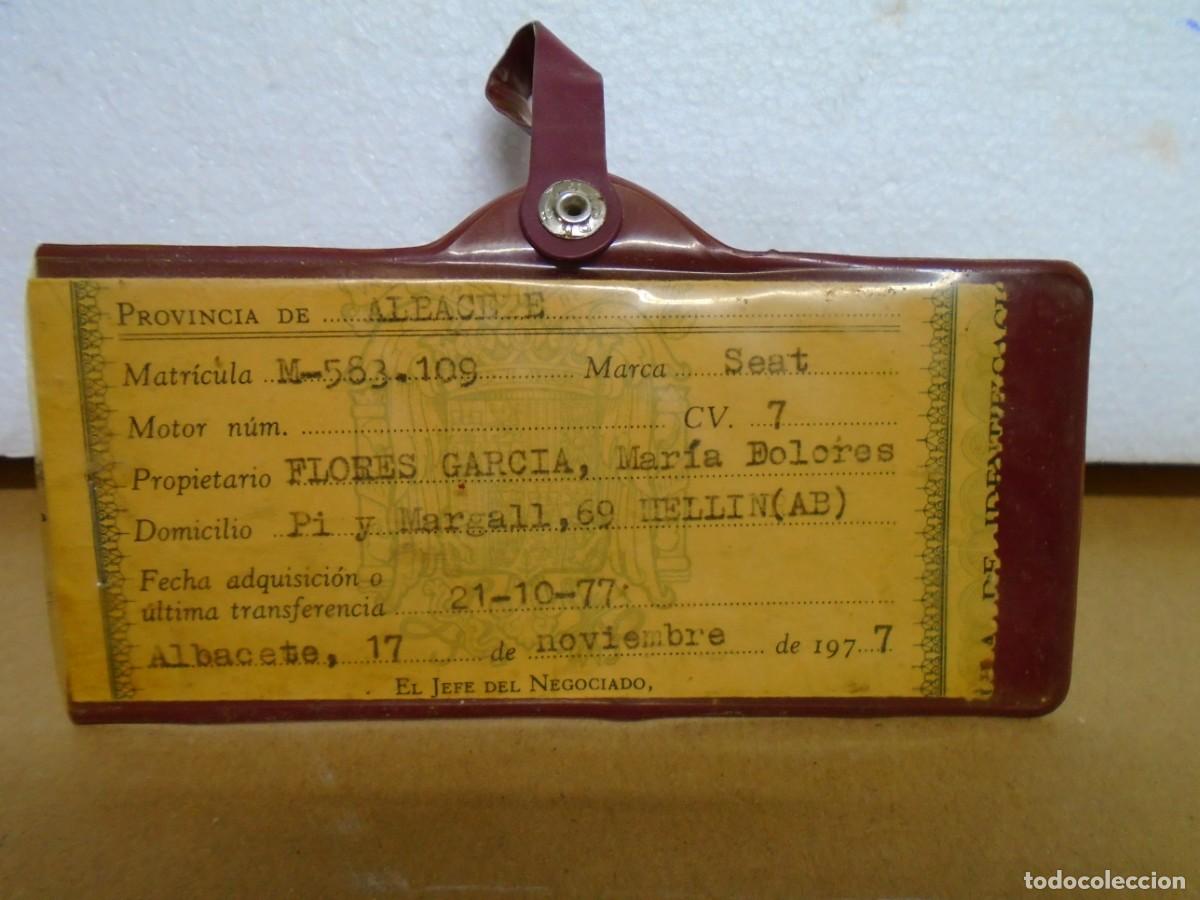 PROVINCIA DE ALBACETE
Matrícula M-583.109 Marca Seat
Motor núm. CV. 7
Propietario FLORES GARCIA, María Dolores
Domicilio Pi y Margall,69 HELLIN(AB)
Fecha adquisición o
última transferencia 21-10-77
Albacete, 17 de noviembre de 197 7
EL JEFE DEL NEGOCIADO,
todocoleccion